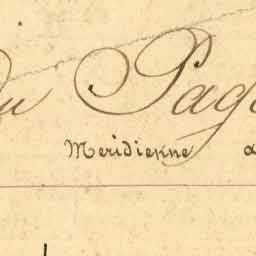 du Pag
Meridienne a